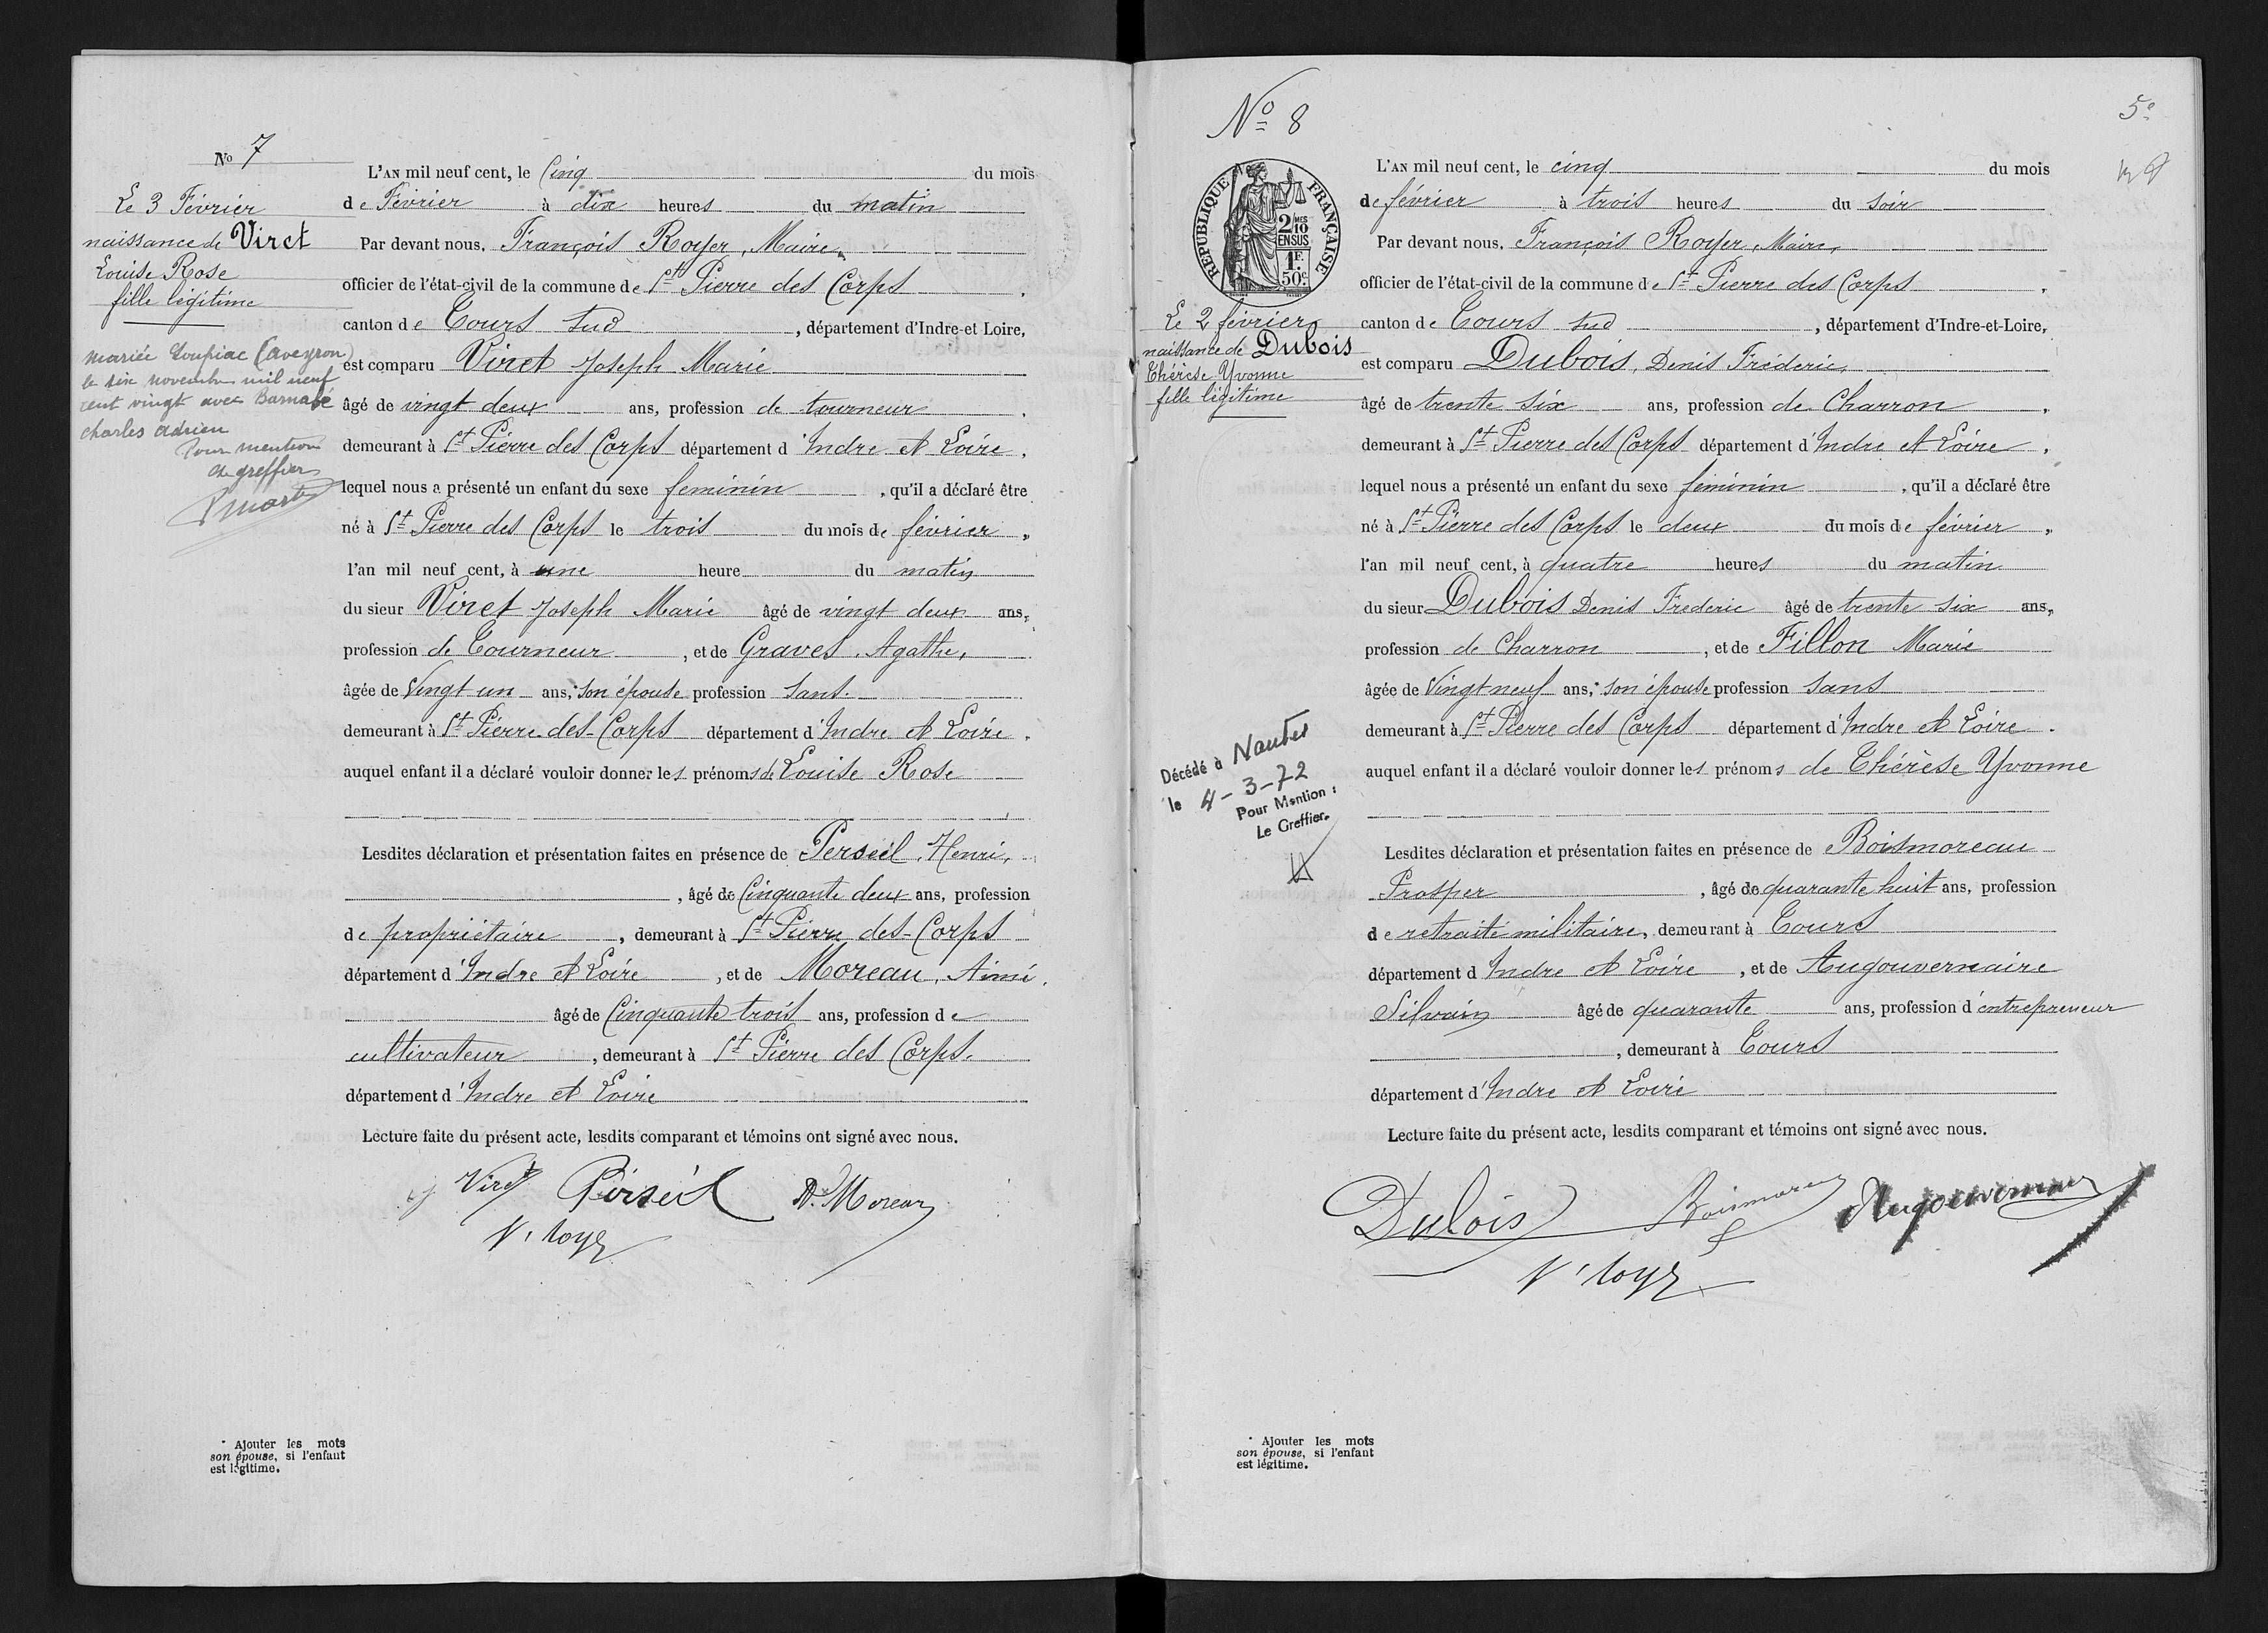 No 7
Le 3 Février
naissance de Viret
Louise Rose
fille légitime
mariée Loupiac (Aveyron)
le six novembre mil neuf
cent vingt avec Barnabé
charles adrien
Pour mention
Le greffier
L'AN mil neuf cent, le Cinq du mois
de Février à dix heures du matin
Par devant nous, François Royer, Maire,
officier de l'état-civil de la commune de St Pierre des Corps,
canton de Tours Sud, département d'Indre-et Loire,
est comparu Viret Joseph Marie
âgé de vingt deux ans, profession de tourneur,
demeurant à St Pierre des Corps département d'Indre et Loire,
lequel nous a présenté un enfant du sexe feminin, qu'il a déclaré être
né à St Pierre des Corps le trois du mois de février,
l'an mil neuf cent, à une heure du matin
du sieur Viret Joseph Marie âgé de vingt deux ans,
profession de Tourneur, et de Graves, Agathe,
âgée de Vingt un ans,* son épouse profession sans.
demeurant à St Pierre des-Corps département d'Indre et Loire.
auquel enfant il a déclaré vouloir donner les prénoms de Louise Rose
Lesdites déclaration et présentation faites en présence de Perseil, Henri,
, âgé de Cinquante deux ans, profession
de propriétaire, demeurant à St Pierre des-Corps
département d'Indre et Loire, et de Moreau, Aimé,
âgé de Cinquante trois ans, profession de
cultivateur, demeurant à St Pierre des Corps.
département d'Indre et Loire
Lecture faite du présent acte, lesdits comparant et témoins ont signé avec nous.
Viret Perseil D. Moreau
F. Royer
* Ajouter les mots
son épouse, si l'enfant
est légitime.
5e
No 8
RÉPUBLIQUE FRANÇAISE
2 MES
10
EN SUS
1F.
50c.
Le 2 février
naissance de Dubois
Thérèse Yvonne
fille légitime
Décédé à Nantes
le 4-3-72
Pour Mention :
Le Greffier.
L'AN mil neuf cent, le cinq du mois
de février à trois heures du soir
Par devant nous, François Royer, Maire,
officier de l'état-civil de la commune de St Pierre des Corps,
canton de Tours Sud, département d'Indre-et-Loire,
est comparu Dubois, Denis Fréderic,
âgé de trente six ans, profession de Charron,
demeurant à St Pierre des Corps département d'Indre et Loire.
lequel nous a présenté un enfant du sexe feminin, qu'il a déclaré être
né à St Pierre des Corps le deux du mois de février,
l'an mil neuf cent, à quatre heures du matin
du sieur Dubois Denis Frederic âgé de trente six ans,
profession de Charron, et de Fillon Marie
âgée de Vingt neuf ans,* son épouse profession sans
demeurant à St Pierre des Corps département d'Indre et Loire.
auquel enfant il a déclaré vouloir donner les prénoms de Thérèse Yvonne
Lesdites déclaration et présentation faites en présence de Boismoreau
Prosper, âgé de quarante huit ans, profession
de retraité militaire, demeurant à Tours
département d Indre et Loire, et de Augouvernaire
Silvain âgé de quarante ans, profession d'entrepreneur
, demeurant à Tours
département d'Indre et Loire
Lecture faite du présent acte, lesdits comparant et témoins ont signé avec nous.
Dubois Boismoreau Augouvernaire
F. Royer
* Ajouter les mots
son épouse, si l'enfant
est légitime.